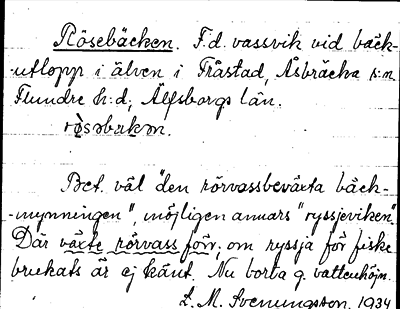 Rösebäcken. F.d. vassvik vid bäck-
-utlopp i älven i Fråstad, Åsbräcka s:n
Flundre h:d, Älfsborgs län.
rösəbakən.
Bet. väl "den rörvassbeväxta bäck-
-mynningen", möjligen annars "ryssjeviken".
Där växte rörvass förr; om ryssja för fiske
brukats är ej känt. Nu borta g. vattenhöjn.
L. M. Svenungsson. 1934